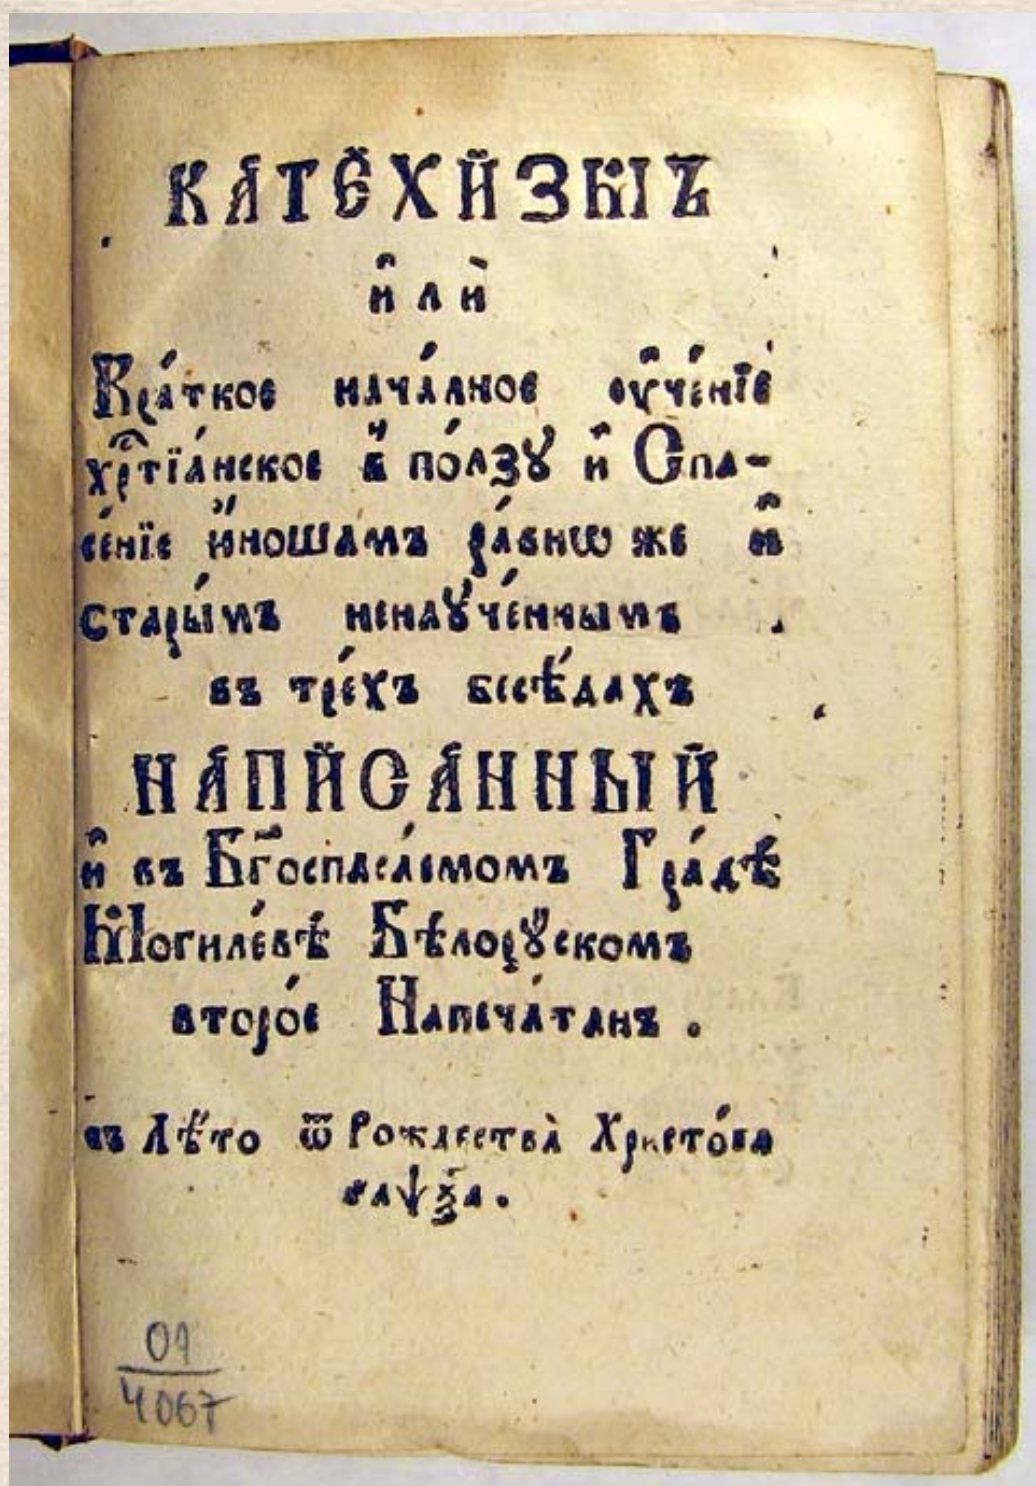 КАТЕ́ХИ́ЗЫЪ
и҆лѝ
Кра́ткое нача́лное ѹ҆че́нїе
хрⷭ҇тїа́нское в̾ по́лзꙋ и҆ Спа-
се́нїе ю҆́ношамъ ра́внѡ же и҆
стары́мъ ненаꙋче́ннымъ
въ тре́хъ бесѣ́дахъ
НАПИ́СА́ННЫЙ
и҆ въ Бг҃оспаса́емомъ Гра́дѣ
Могиле́вѣ Бѣлорꙋ́скомъ
второ́е Напеча́танъ.
въ Лѣ́то ѿ Рождествà Христо́ва
҂аѱѯа.
01
4067